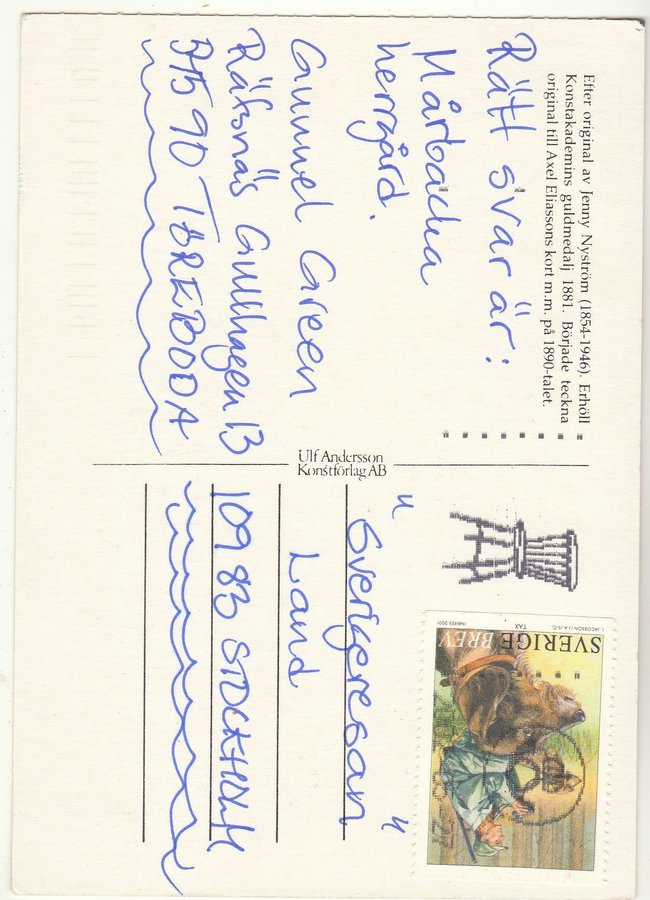 Efter original av Jenny Nyström (1854-1946). Erhöll
Konstakademins guldmedalj 1881. Började teckna
original till Axel Eliassons kort m.m. på 1890-talet.
Rätt svar är:
Mårbacka
herrgård.
Green
Räfsnäs Gullhagen 13
545 90 TÖREBODA
Ulf Andersson
Konstförlag AB
"Sverigeresan"
Land
109 83 STOCKHOLM
SVERIGE BREV
TAX
INRIKES 2001